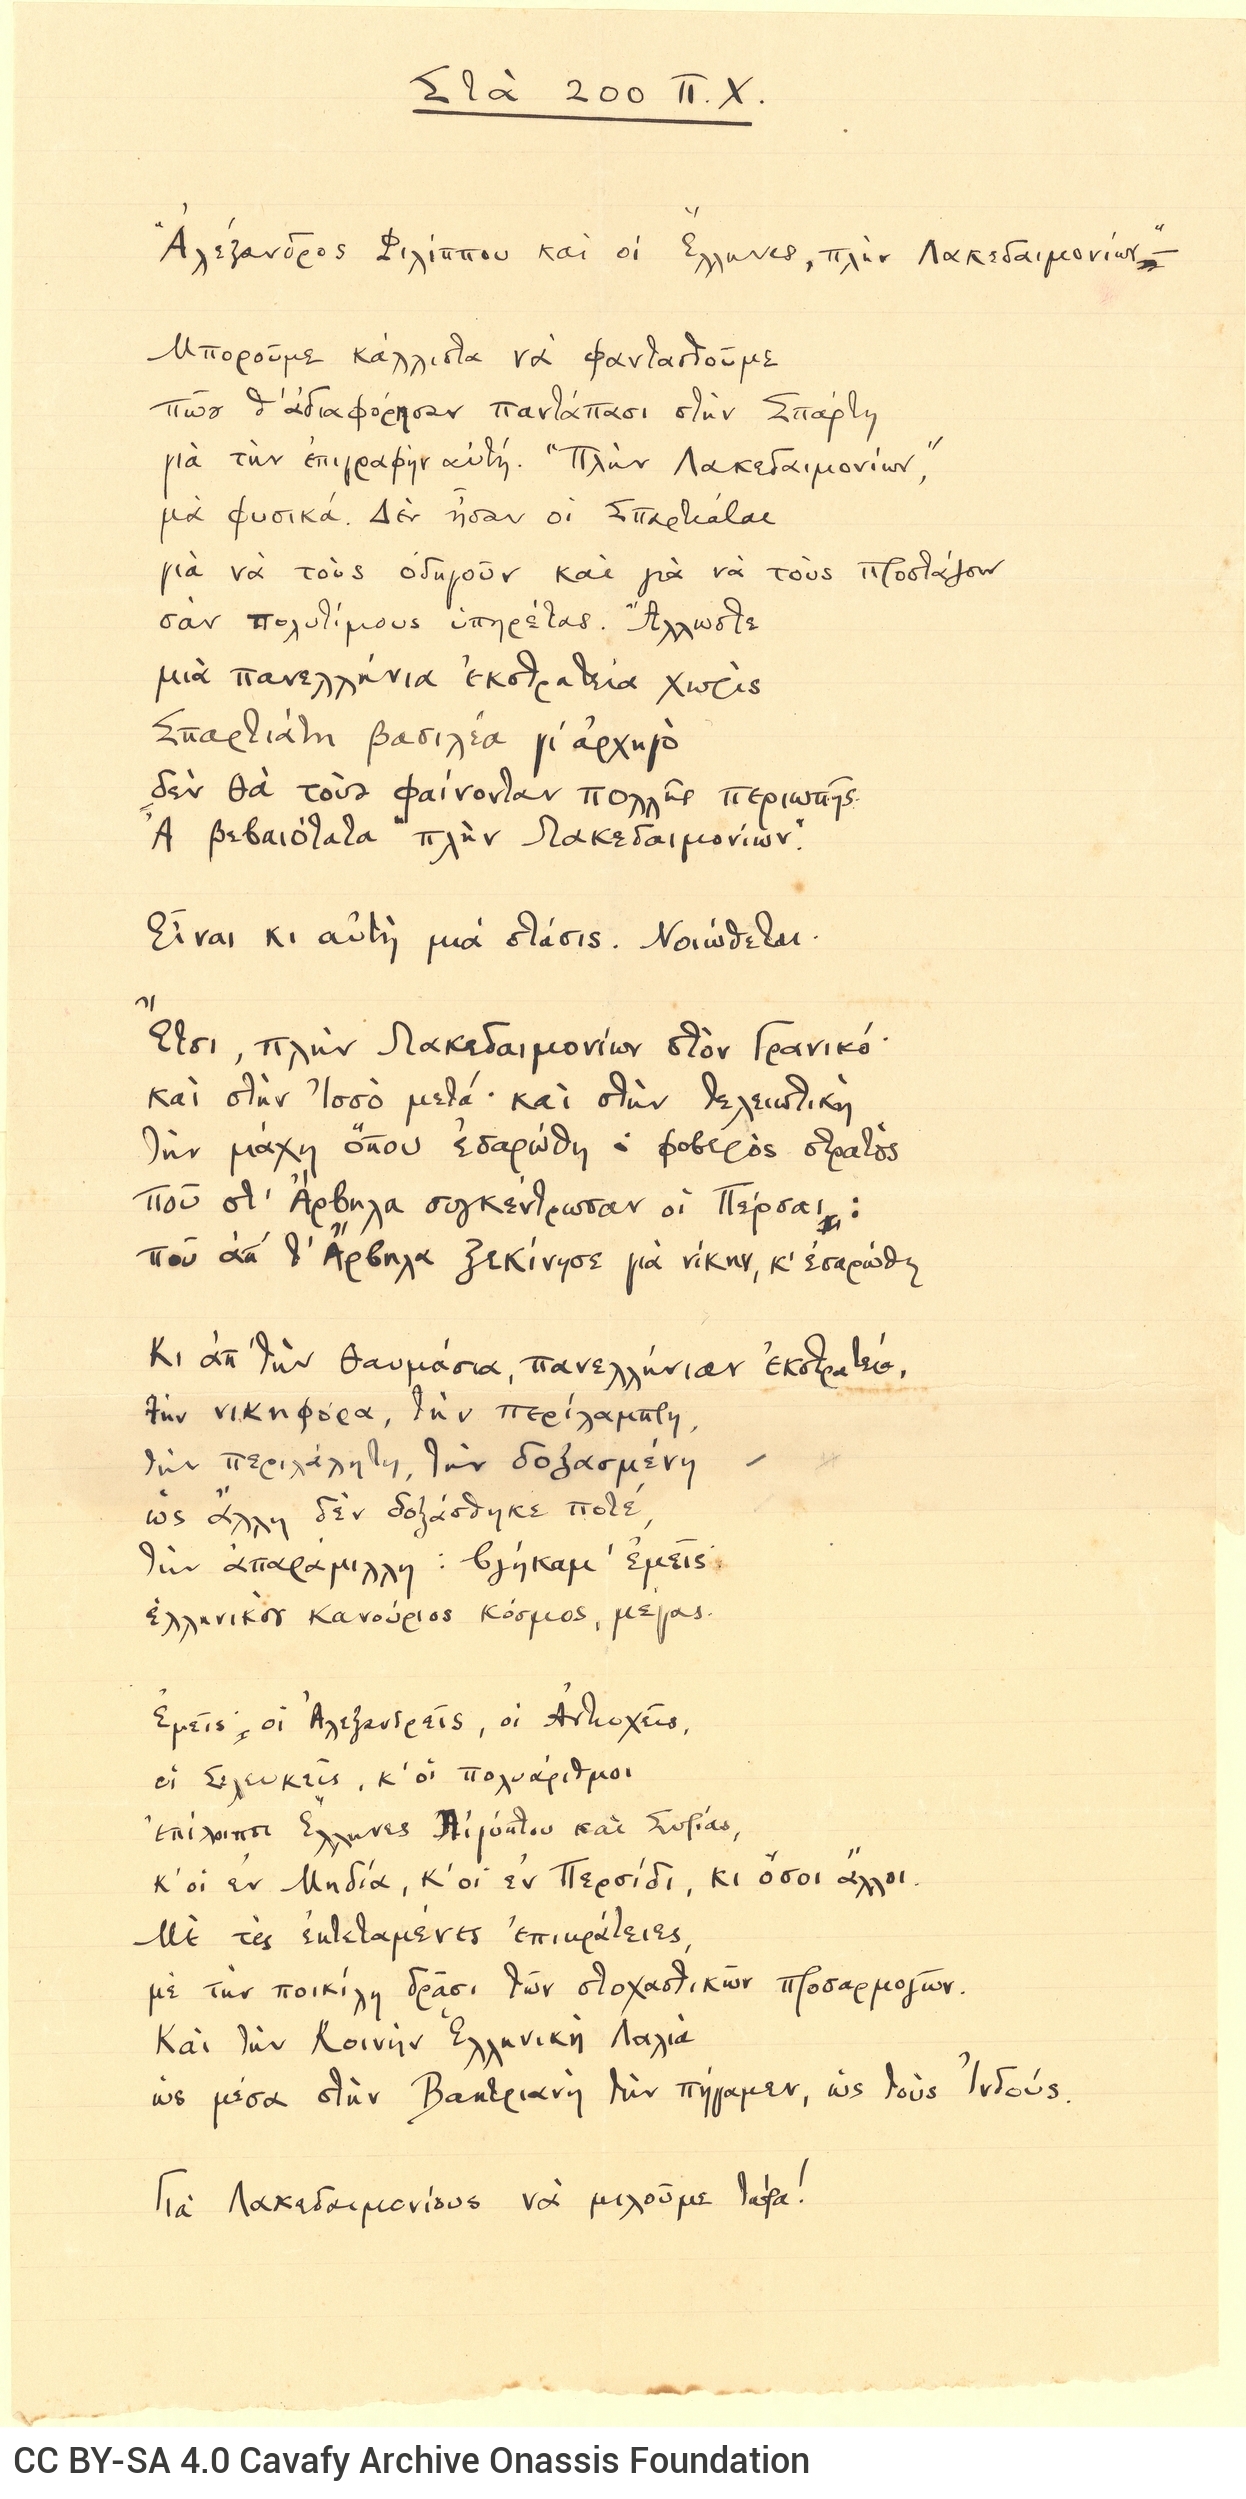 Στὰ 200 π.Χ.
"Ἀλέξανδρος Φιλίππου καὶ οἱ Ἕλληνες, πλὴν Λακεδαιμονίων"—
Μποροῦμε κάλλιστα νὰ φαντασθοῦμε
πῶς θ' ἀδιαφόρησαν παντάπασι στὴν Σπάρτη
γιὰ τὴν ἐπιγραφὴν αὐτή. "Πλὴν Λακεδαιμονίων,"
μὰ φυσικά. Δὲν ἦσαν οἱ Σπαρτιάται
γιὰ νὰ τοὺς ὁδηγοῦν καὶ γιὰ νὰ τοὺς προστάζουν
σὰν πολυτίμους ὑπηρέτας. Ἄλλωστε
μιὰ πανελλήνια ἐκστρατεία χωρὶς
Σπαρτιάτη βασιλέα γι' ἀρχηγὸ
δὲν θὰ τοὺς φαίνονταν πολλῆς περιωπῆς.
Ἆ βεβαιότατα "πλὴν Λακεδαιμονίων".
Εἶναι κι αὐτὴ μιὰ στάσις. Νοιώθεται.
Ἔτσι, πλὴν Λακεδαιμονίων στὸν Γρανικό·
καὶ στὴν Ἰσσὸ μετά· καὶ στὴν τελειωτικὴ
τὴν μάχη ὅπου ἐσαρώθη ὁ φοβερὸς στρατὸς
ποῦ στ' Ἄρβηλα συγκέντρωσαν οἱ Πέρσαι:
ποῦ ἀπ' τ' Ἄρβηλα ξεκίνησε γιὰ νίκην, κ' ἐσαρώθη
Κι ἀπ' τὴν θαυμάσια, πανελλήνιαν ἐκστρατεία,
τὴν νικηφόρα, τὴν περίλαμπρη,
τὴν περιλάλητη, τὴν δοξασμένη
ὡς ἄλλη δὲν δοξάσθηκε ποτέ,
τὴν ἀπαράμιλλη: βγήκαμ' ἐμεῖς·
ἑλληνικὸς καινούριος κόσμος, μέγας.
Ἐμεῖς· οἱ Ἀλεξανδρεῖς, οἱ Ἀντιοχεῖς,
οἱ Σελευκεῖς, κ' οἱ πολυάριθμοι
ἐπίλοιποι Ἕλληνες Αἰγύπτου καὶ Συρίας,
κ' οἱ ἐν Μηδίᾳ, κ' οἱ ἐν Περσίδι, κι ὅσοι ἄλλοι.
Μὲ τὲς ἐκτεταμένες ἐπικράτειες,
μὲ τὴν ποικίλη δρᾶσι τῶν στοχαστικῶν προσαρμογῶν.
Καὶ τὴν Κοινὴν Ἑλληνικὴ Λαλιὰ
ὣς μέσα στὴν Βακτριανὴ τὴν πήγαμεν, ὣς τοὺς Ἰνδούς.
Γιὰ Λακεδαιμονίους νὰ μιλοῦμε τώρα!
CC BY-SA 4.0 Cavafy Archive Onassis Foundation